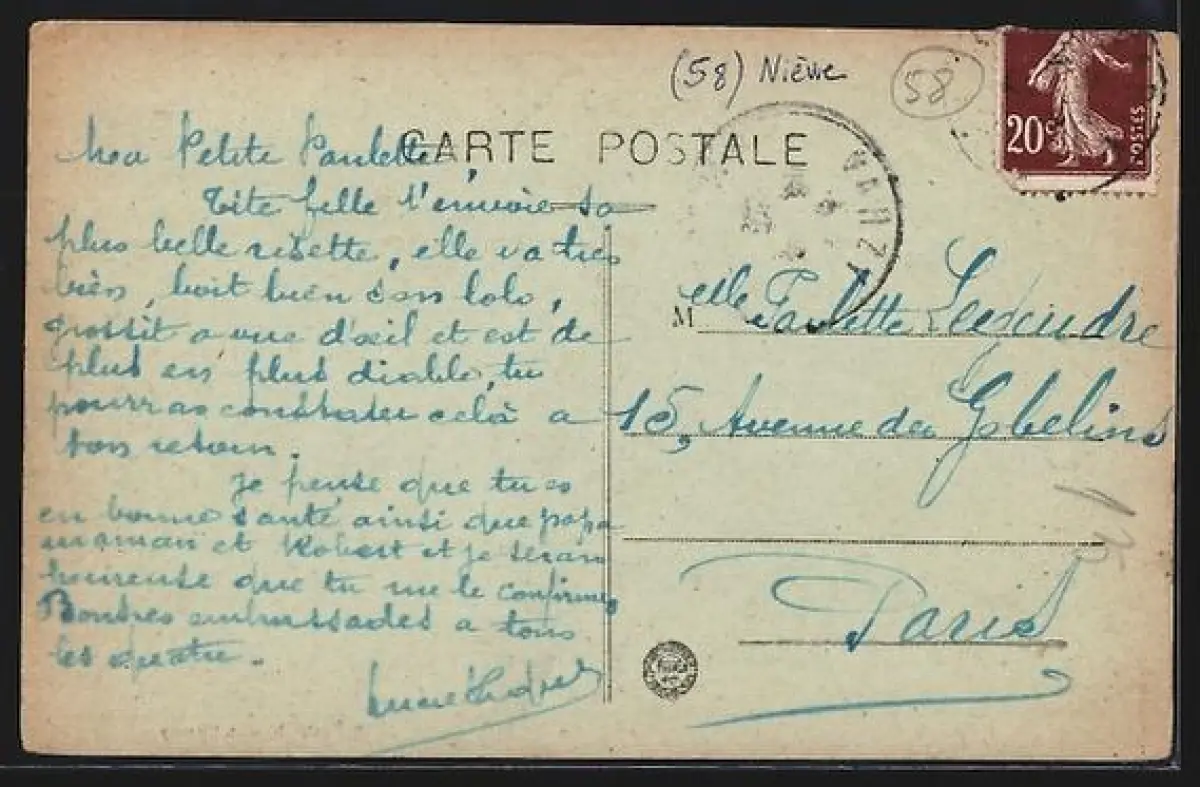 (58) Nièvre
58
20c
POSTES
CARTE POSTALE
Ma Petite Paulette,
Tite fille t'envoie sa
plus belle risette, elle va très
bien, boit bien son lolo,
grossit a vue d'œil et est de
plus en plus diable, tu
pourras constater celà a
ton retour.
Je pense que tu es
en bonne santé ainsi que papa
maman et Robert et je serais
heureuse que tu me le confirmes
Bonnes embrassades a tous
les quatre.
Melle Paulette
15, Avenue des Gobelins
Paris